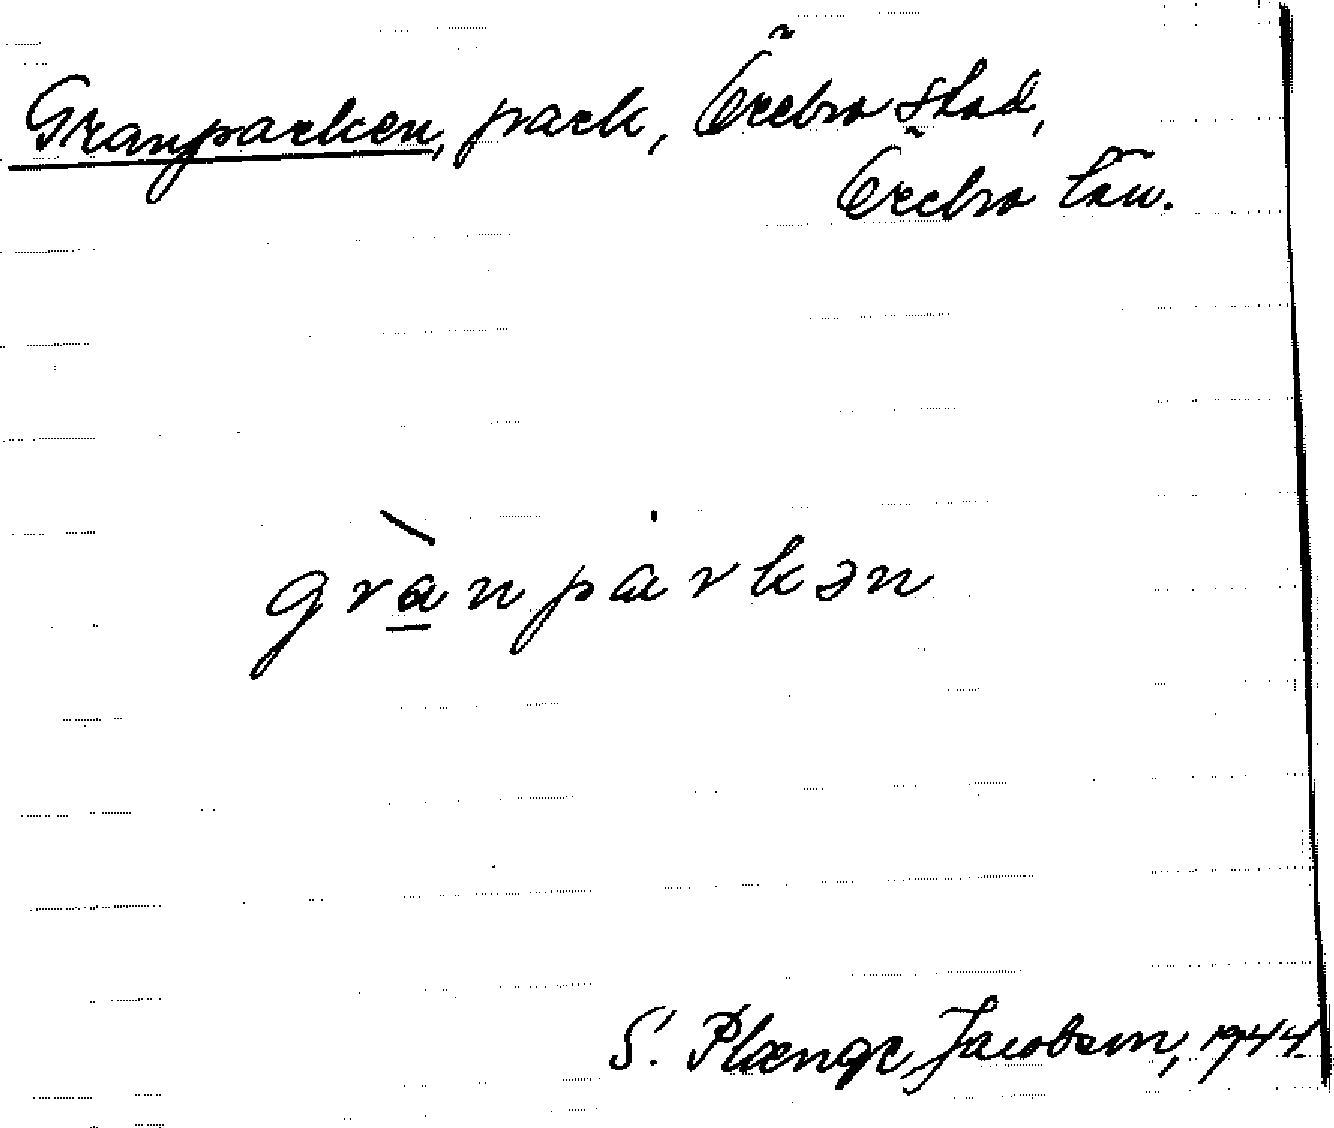 Granparken, park, Örebro stad,
Örebro län.
grànpȧrkən
S. Plænge Jacobson, 1944.